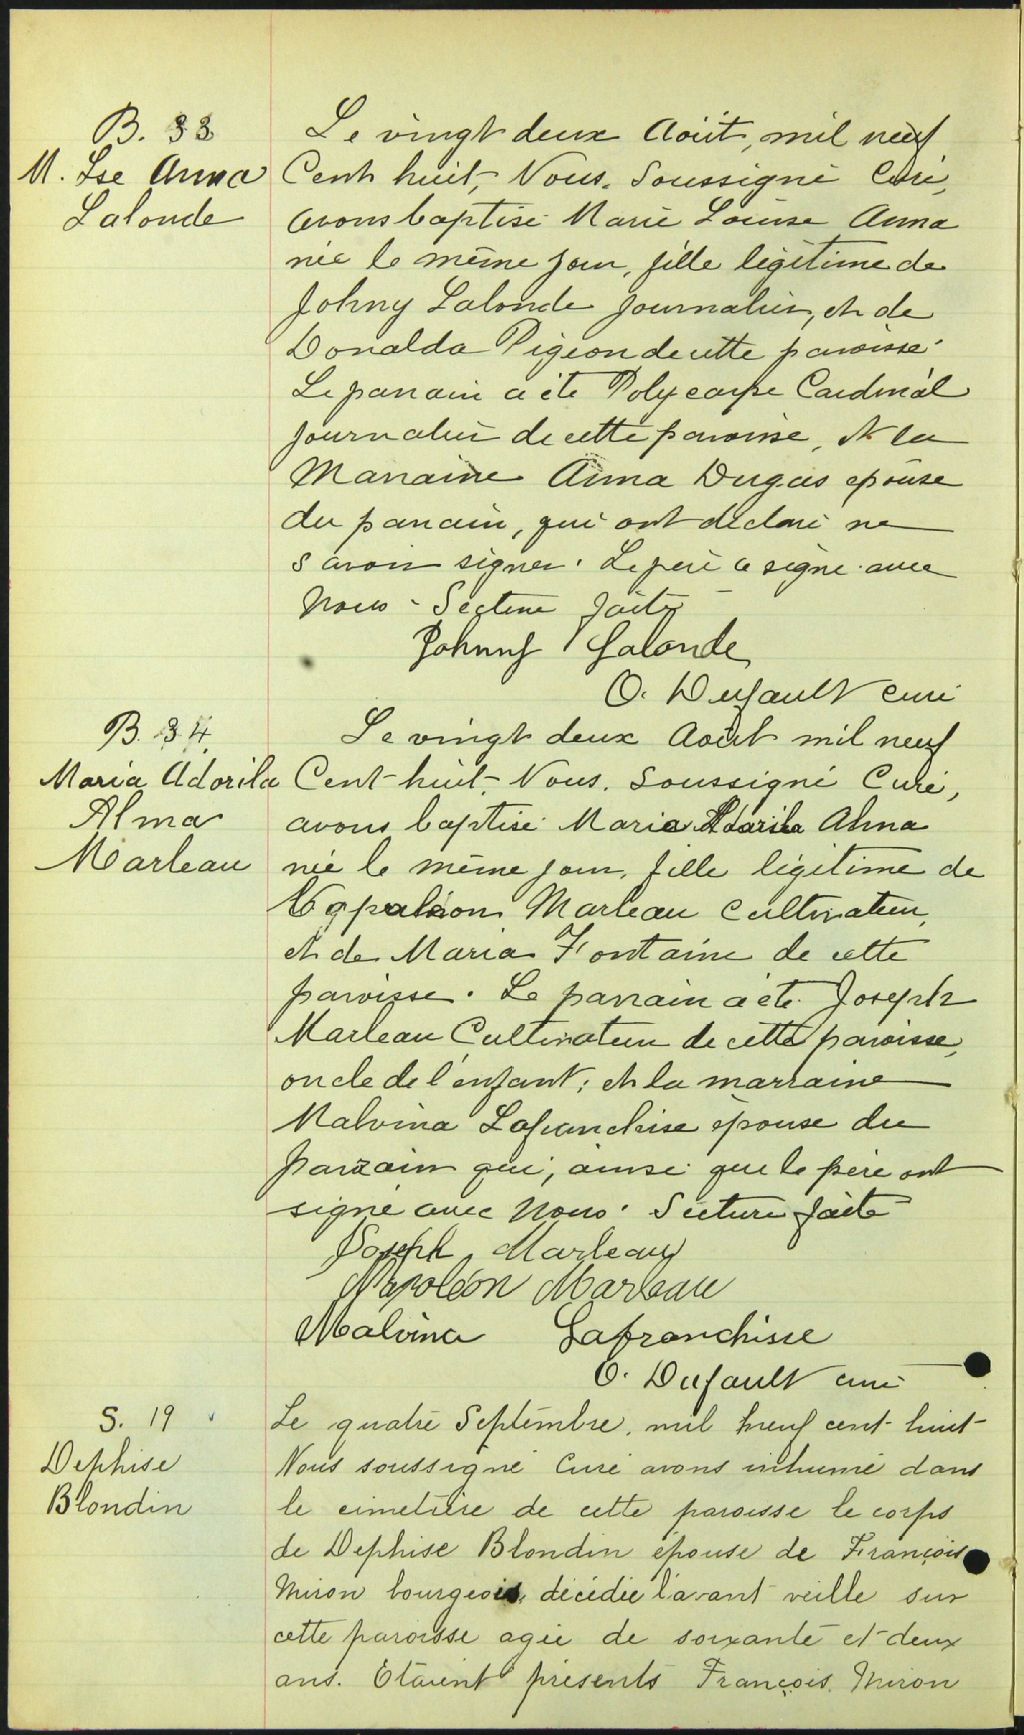 B. 33
M. Lse Anna
Lalonde
Le vingt deux Août, mil neuf
Cent huit, Nous, Soussigné Curé,
avons baptisé Marie Louise Anna
née le même jour, fille légitime de
Johny Lalonde journalier, et de
Donalda Pigeon de cette paroisse.
Le parrain a été Polycarpe Cardinal
journalier de cette paroisse, et la
Marraine Anna Dugas épouse
du parrain, qui ont déclaré ne
savoir signer. Le père a signé avec
Nous. Lecture faite
Johnny Lalonde
O. Dufault curé
B. 34
Maria Adorila
Alma
Marleau
Le vingt deux Août mil neuf
Cent huit, Nous, soussigné Curé,
avons baptisé Maria Adorila Alma
née le même jour, fille légitime de
Napoléon Marleau Cultivateur,
et de Maria Fontaine de cette
paroisse. Le parrain a été Joseph
Marleau Cultivateur de cette paroisse,
oncle de l'enfant; et la marraine
Malvina Lafranchise épouse du
parrain qui, ainsi que le père ont
signé avec Nous. Lecture faite
Joseph Marleau
Napoléon Marleau
Malvina Lafranchisse
O. Dufault curé
S. 19
Dephise
Blondin
Le quatre Septembre, mil neuf cent huit
Nous soussigné Curé avons inhumé dans
le cimetière de cette paroisse le corps
de Dephise Blondin épouse de François
Miron bourgeois, décédée l'avant veille sur
cette paroisse agée de soixante et deux
ans. Etaient présents François Miron